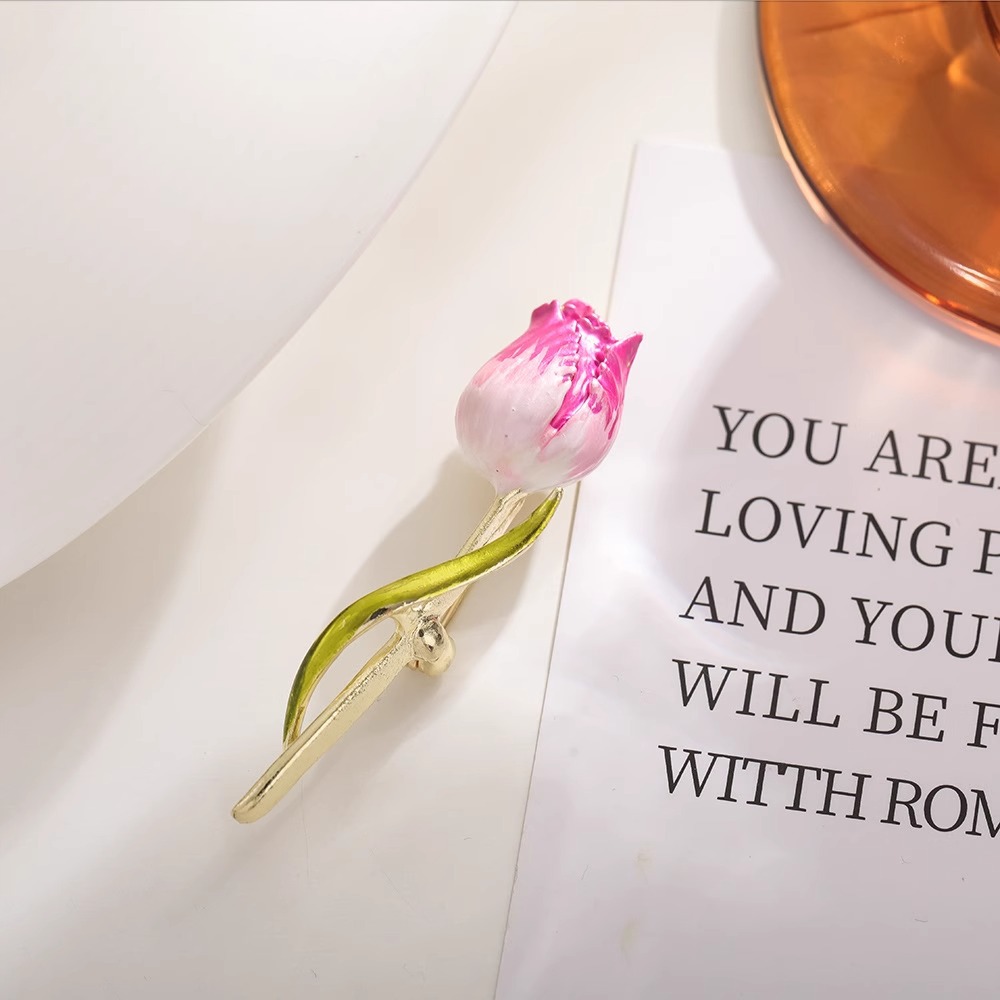 YOU ARE
LOVING P
AND YOU
WILL BE F
WITTH ROM